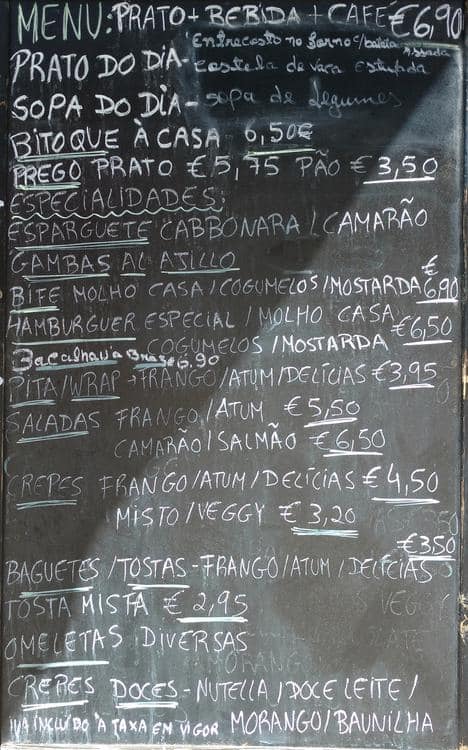 MENU: PRATO + BEBIDA + CAFÉ €6,90
PRATO DO DIA - Entrecosto no forno c/ batata Assada
Costela de vaca Estufada
SOPA DO DIA - sopa de Legumes
BITOQUE À CASA 6,50€
PREGO PRATO €5,75 PÃO €3,50
ESPECIALIDADES:
ESPARGUETE CABBONARA / CAMARÃO
GAMBAS AL AJILLO
BIFE MOLHO CASA / COGUMELOS / MOSTARDA €6,90
HAMBURGUER ESPECIAL / MOLHO CASA €6,50
COGUMELOS / MOSTARDA
Bacalhau à Bras €6,90
PITA/WRAP → FRANGO/ATUM/DELÍCIAS €3,95
SALADAS FRANGO/ATUM €5,50
CAMARÃO/SALMÃO €6,50
CREPES FRANGO/ATUM/DELÍCIAS €4,50
MISTO/VEGGY €3,20
€3,50
BAGUETES/TOSTAS - FRANGO/ATUM/DELÍCIAS
TOSTA MISTA €2,95 VEGGY
OMELETAS DIVERSAS
MORANGO
CREPES DOCES - NUTELLA/DOCE LEITE/
IVA INCLUÍDO À TAXA EM VIGOR MORANGO/BAUNILHA